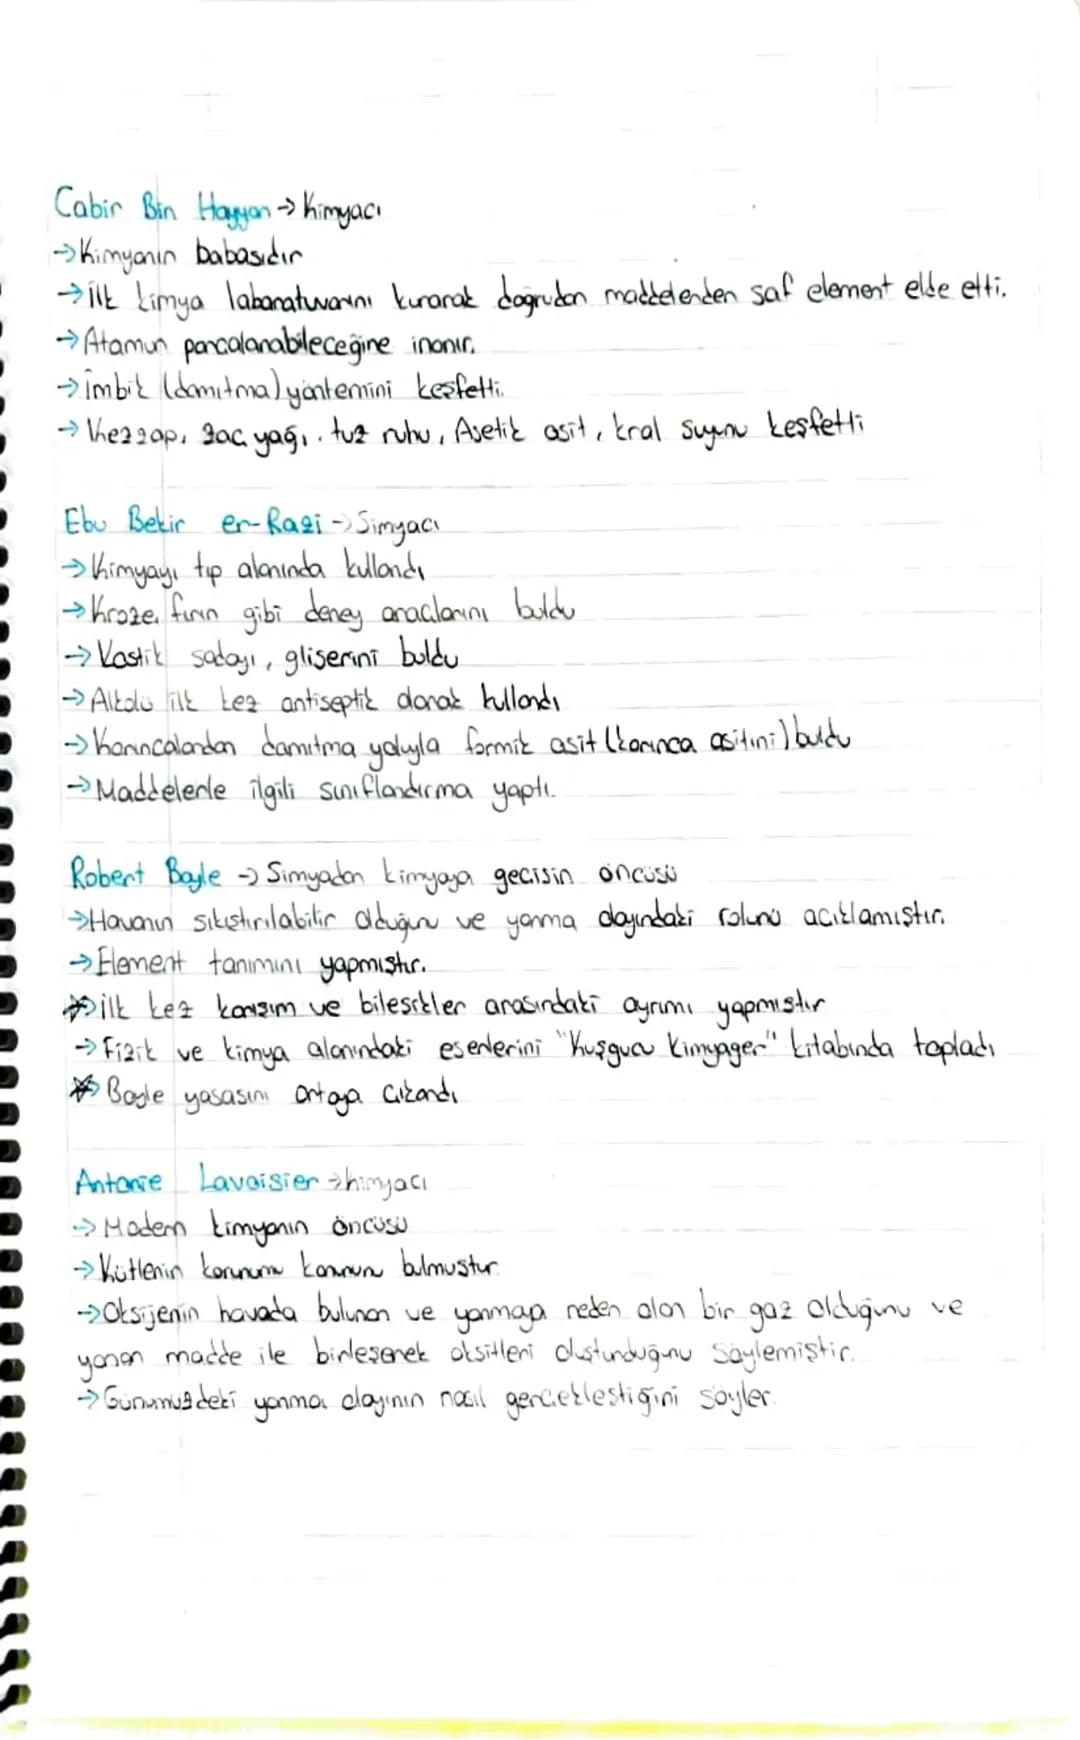 Cabir Bin Hayyan → Kimyacı
→ Kimyanın babasıdır
→ ilk kimya labaratuvarını kurarak doğrudan maddelerden saf element elde etti.
→ Atomun parçalanabileceğine inanır.
→ imbik (damıtma) yöntemini keşfetti.
→ Kezzap, zaç yağı, tuz ruhu, Asetik asit, kral suyunu keşfetti
Ebu Bekir er-Razi → Simyacı
→ Kimyayı tıp alanında kullandı
→ Kroze, fırın gibi deney araçlarını buldu
→ Kostik sodayı, gliserini buldu
→ Alkolü ilk kez antiseptik olarak kullandı
→ Karıncalardan damıtma yoluyla formik asit (karınca asitini) buldu
→ Maddelerle ilgili sınıflandırma yaptı.
Robert Boyle → Simyadan kimyaya geçisin öncüsü
→ Havanın sıkıştırılabilir olduğunu ve yanma olayındaki rolünü acıklamıştır.
→ Element tanımını yapmıştır.
→ ilk kez karışım ve bilesikler arasındaki ayrımı yapmıstır
→ Fizik ve kimya alanındaki eserlerini "Kuşgucu Kimyager" kitabında topladı
→ Boyle yasasını ortaya çıkardı
Antonie Lavoisier → kimyacı
→ Modern kimyanın öncüsü
→ Kütlenin korunumu kanunu bulmuştur
→ Oksijenin havada bulunan ve yanmaya neden olan bir gaz olduğunu ve
yanan madde ile birleşerek oksitleri oluşturduğunu söylemiştir.
→ Günümüzdeki yanma olayının nasıl gerçekleştiğini söyler.